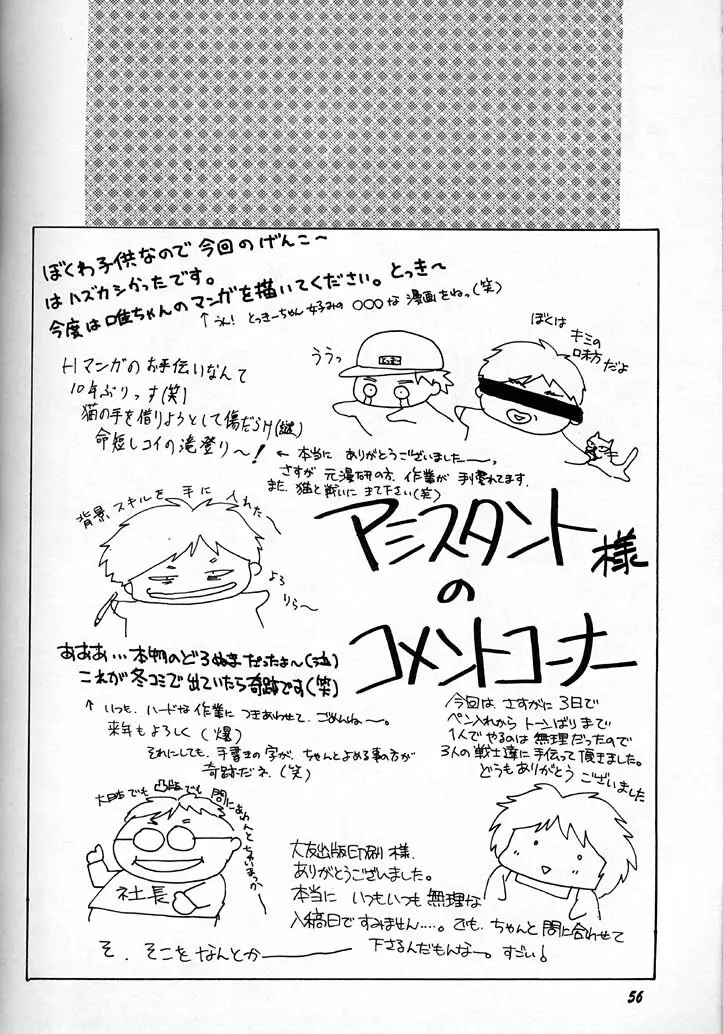 ぼくわ子供なので今回のげんこ〜
はハズカシかったです。
今度は唯ちゃんのマンガを描いてください。とっき〜
↑うん！とっきーちゃん好みの○○○な漫画をねっ(笑)
Hマンガのお手伝いなんて
10年ぶりっす(笑)
猫の手を借りようとして傷だらけ(謎)
命短しコイの滝登り〜！
ううっ
ぼくは
キミの
味方だよ
←本当にありがとうございました――っ
さすが元漫研の方、作業が手慣れてます。
また、猫と戦いにきて下さい(笑)
背景スキルを手に入れた〜
よろ
りら〜
アシスタント様
の
コメントコーナー
あああ…本物のどろぬまだったよぉ〜(泣)
これが冬コミで出ていたら奇跡です(笑)
↑いつも、ハードな作業につきあわせて、ごめんね〜。
来年もよろしく(爆)
それにしても、手書きの字が、ちゃんとよめる事の方が
奇跡だネ(笑)
今回は、さすがに3日で
ペン入れからトーンはりまで
1人でやるのは無理だったので
3人の戦士達に手伝って頂きました。
どうもありがとうございました
大日本でも凸版でも間にあわんとちゃいまっか〜
社長
大友出版印刷様、
ありがとうございました。
本当にいつもいつも無理な
入稿日ですみません…。でも、ちゃんと間に合わせて
下さるんだもんなー。すごい！
そ、そこをなんとか――
56